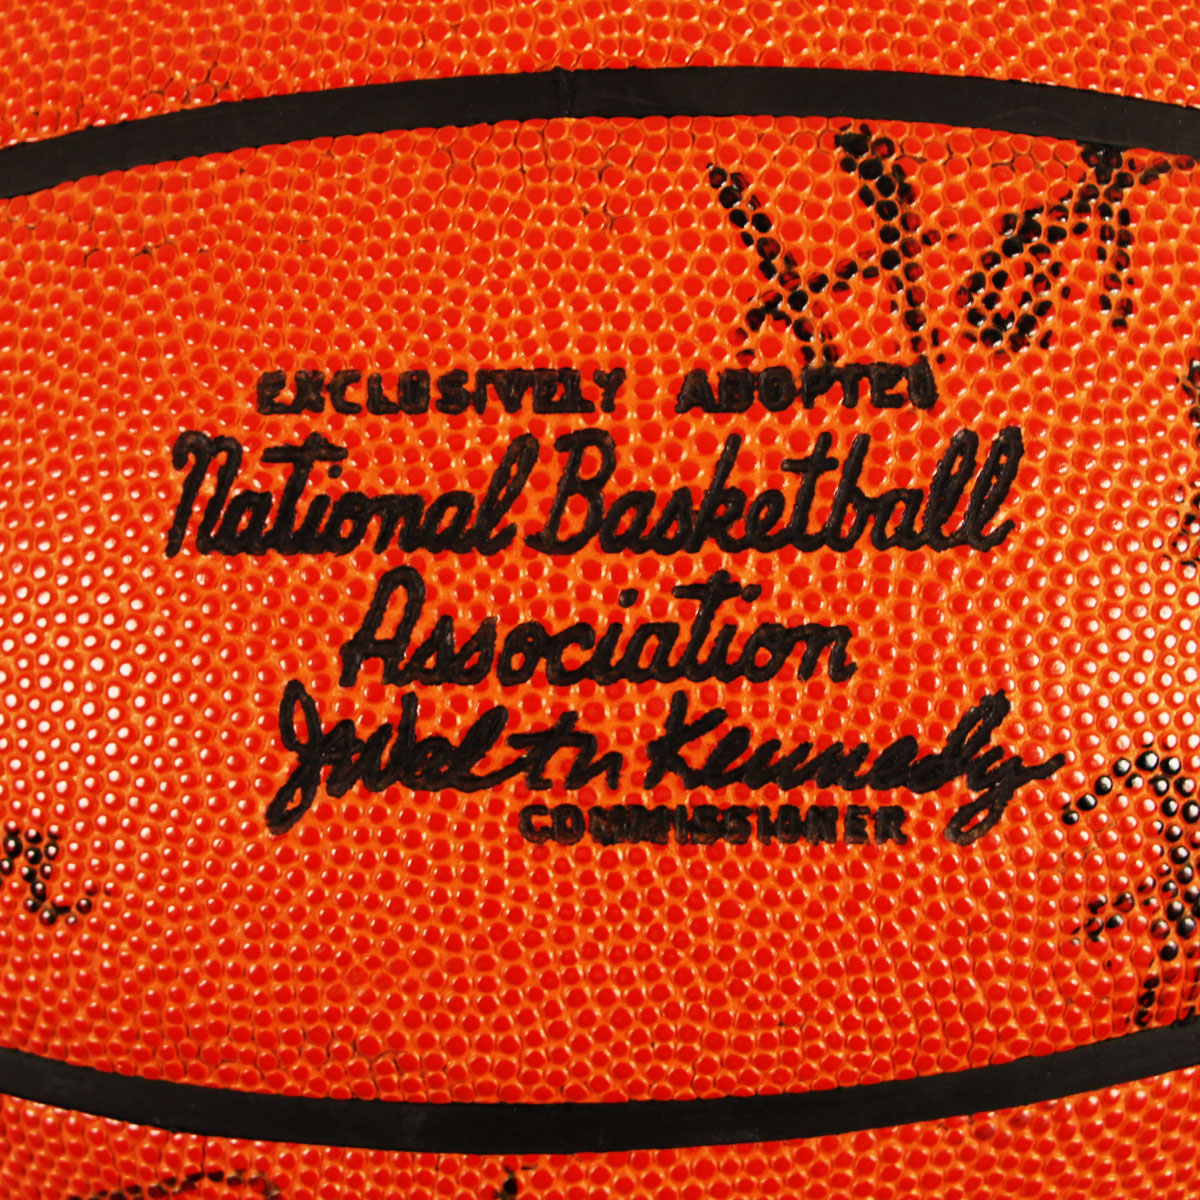 EXCLUSIVELY ADOPTED
National Basketball
Association
J Walter Kennedy
COMMISSIONER